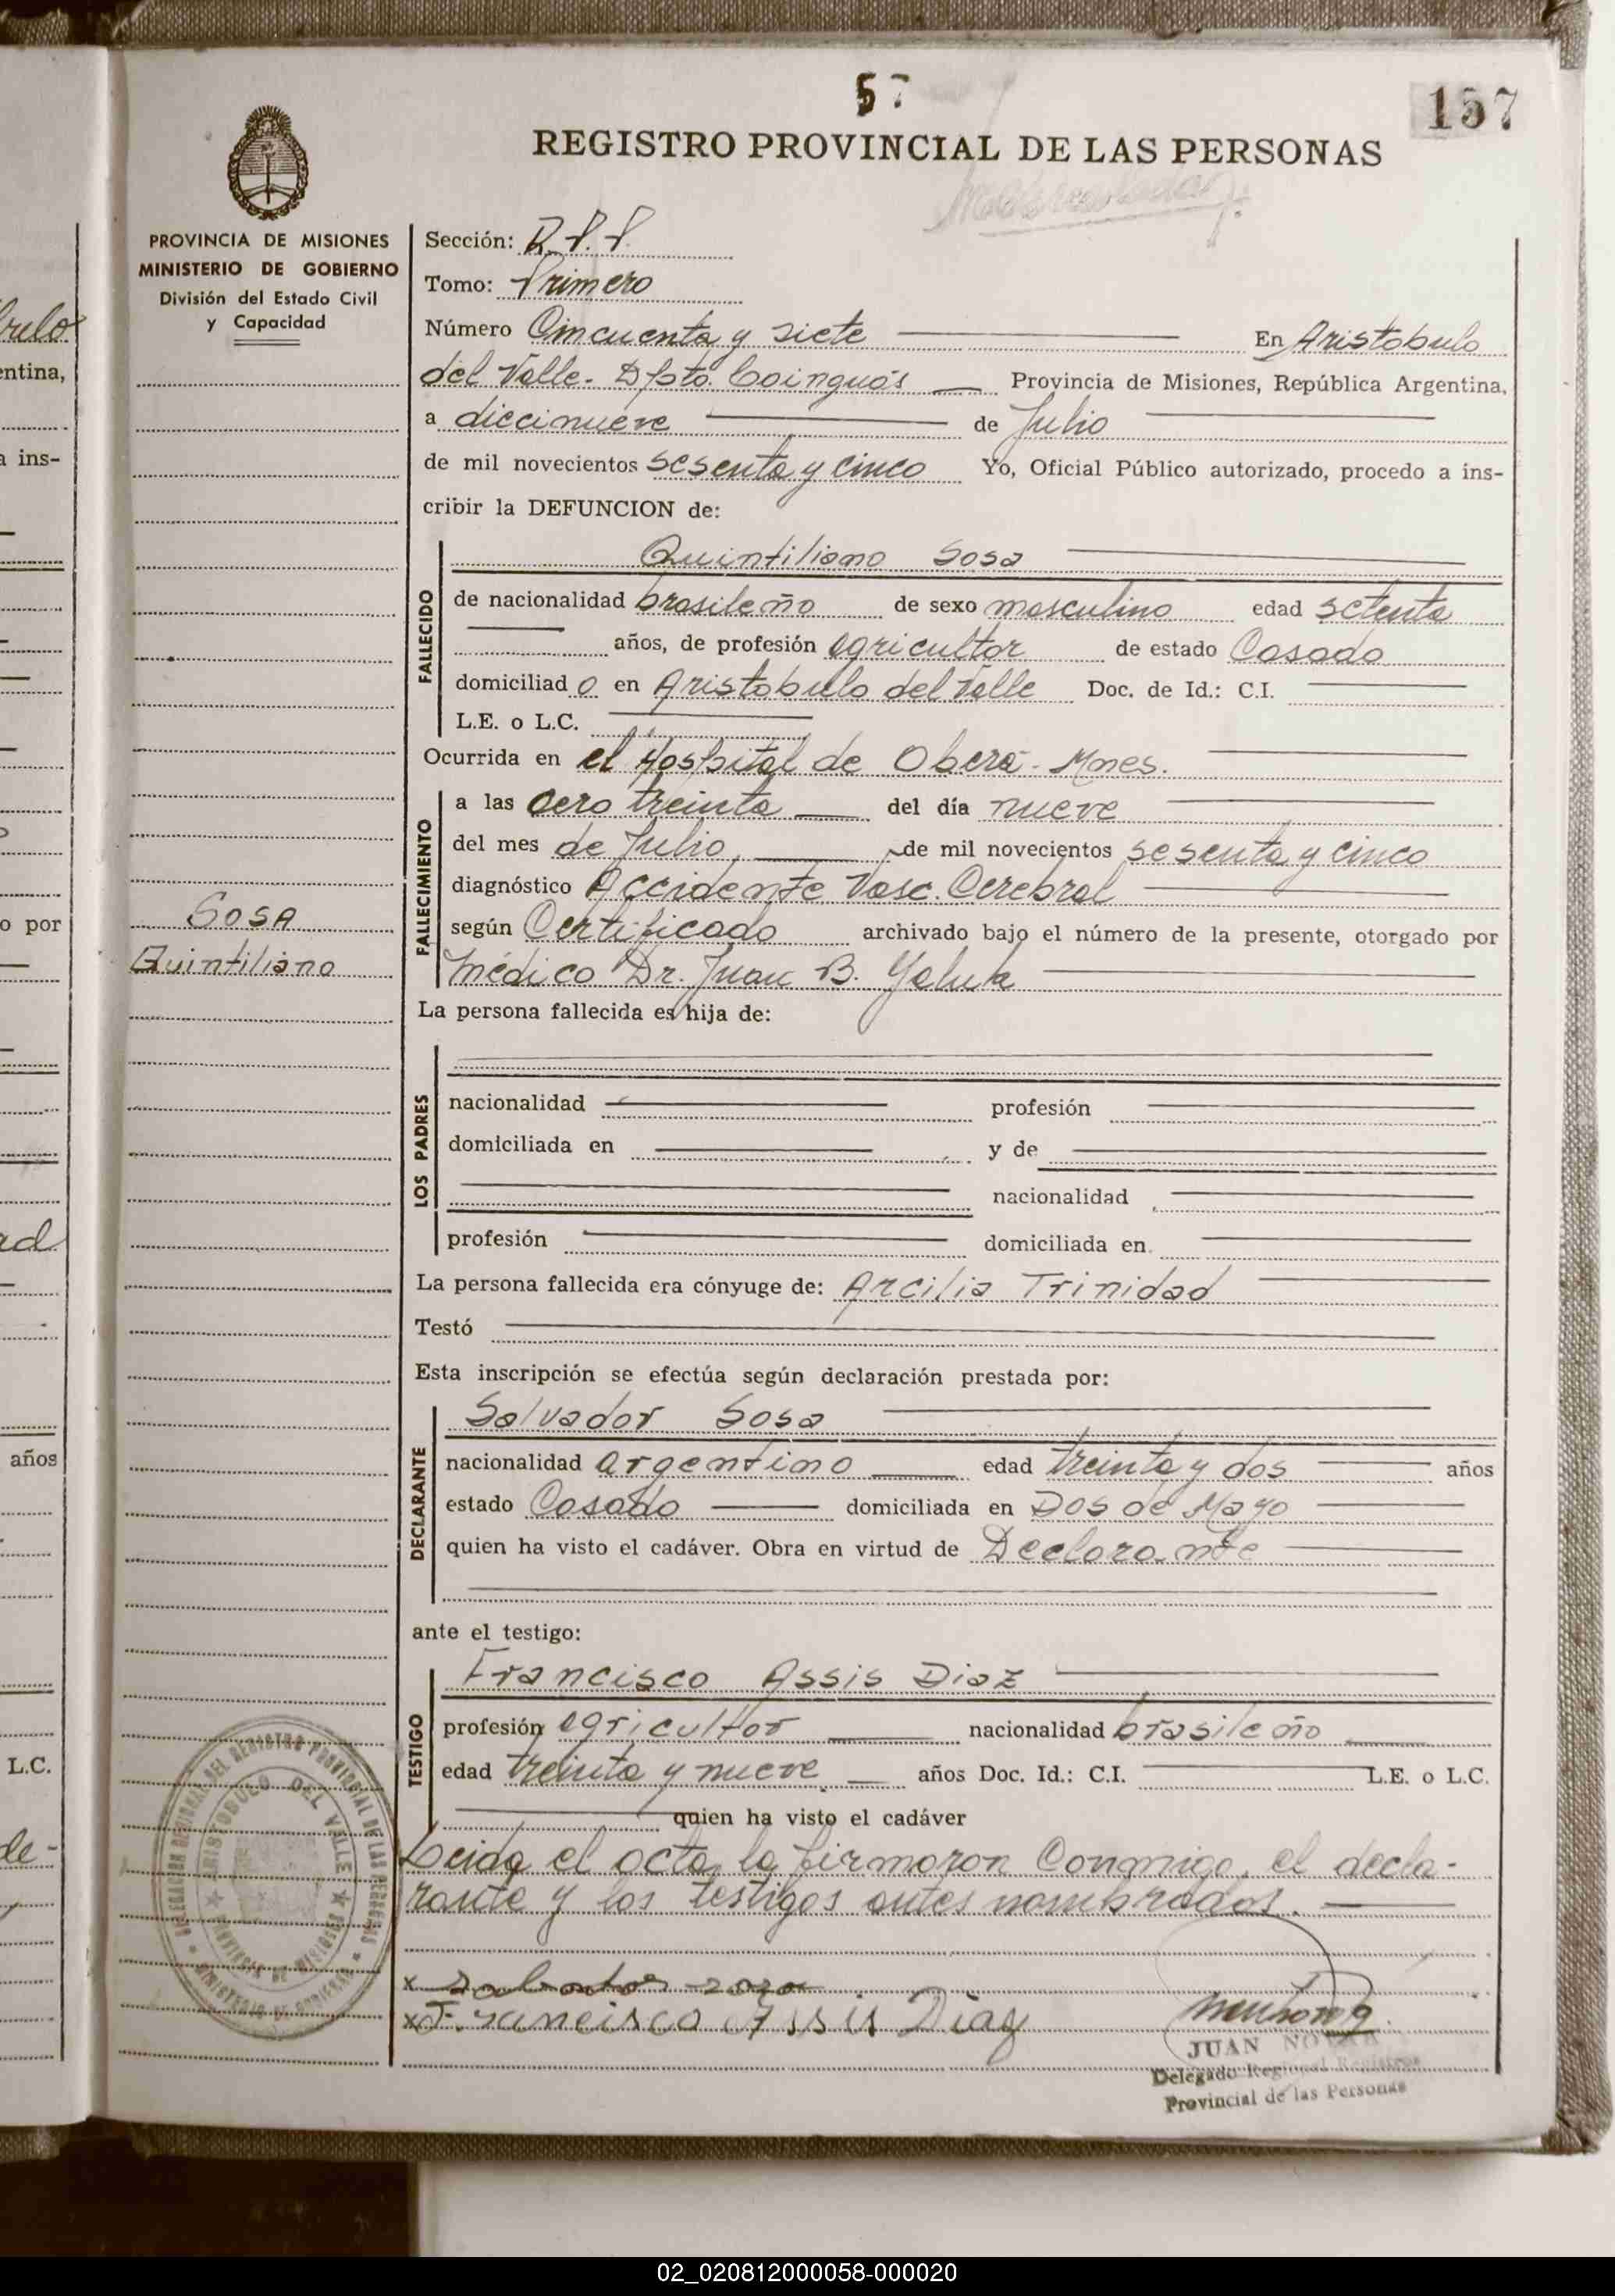 57
157
REGISTRO PROVINCIAL DE LAS PERSONAS
PROVINCIA DE MISIONES
MINISTERIO DE GOBIERNO
División del Estado Civil
y Capacidad
Sección: R.P.P.
Tomo: Primero
Número Cincuenta y siete En Aristobulo
del Valle. Dpto. Cainguás Provincia de Misiones, República Argentina,
a diecinueve de Julio
de mil novecientos sesenta y cinco Yo, Oficial Público autorizado, procedo a ins-
cribir la DEFUNCION de:
FALLECIDO
Quintiliano Sosa
de nacionalidad brasileño de sexo masculino edad setenta
años, de profesión agricultor de estado Casado
domiciliado en Aristobulo del Valle Doc. de Id.: C.I.
L.E. o L.C.
Ocurrida en el Hospital de Oberá - Mnes.
FALLECIMIENTO
a las cero treinta del día nueve
del mes de Julio, de mil novecientos sesenta y cinco
diagnóstico Accidente Vasc. Cerebral
según Certificado archivado bajo el número de la presente, otorgado por
médico Dr. Juan B.
SOSA
Quintiliano
La persona fallecida es hija de:
LOS PADRES
nacionalidad profesión
domiciliada en y de
nacionalidad
profesión domiciliada en
La persona fallecida era cónyuge de: Arcilia Trinidad
Testó
Esta inscripción se efectúa según declaración prestada por:
DECLARANTE
Salvador Sosa
nacionalidad argentino edad treinta y dos años
estado Casado domiciliada en Dos de Mayo
quien ha visto el cadáver. Obra en virtud de Declarante
ante el testigo:
TESTIGO
Francisco Assis Diaz
profesión agricultor nacionalidad brasileño
edad treinta y nueve años Doc. Id.: C.I. L.E. o L.C.
quien ha visto el cadáver
Leida el acta, la firmaron Conmigo, el decla-
rante y los testigos antes nombrados.
x Salbador sosa
x Francisco Assis Diaz
JUAN
Delegado Regional Registro
Provincial de las Personas
DELEGACION REGIONAL DEL REGISTRO PROVINCIAL DE LAS PERSONAS
ARISTOBULO DEL VALLE
PROVINCIA DE MISIONES
MINISTERIO DE GOBIERNO
entina,
a ins-
o por
ad
años
L.C.
de-
02_020812000058-000020